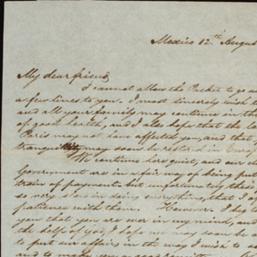 Mexico 12th August
My dear friend,
I cannot allow the Packet to go
a few lines to you. I most sincerely wish
and all your family may continue in the
of good health, and I also hope that the
Paris may not have affected you, and that
tranquility may soon be restored in
We continue here quiet, and our
Government are in a fair way of being put
train of payment but unfortunately these
so very slow in doing everything, that I
patience with them. However I beg
you that you are ever in my mind, and
the help of God, I hope we may soon be
to put our affairs in the way I wish to
and to make you a good